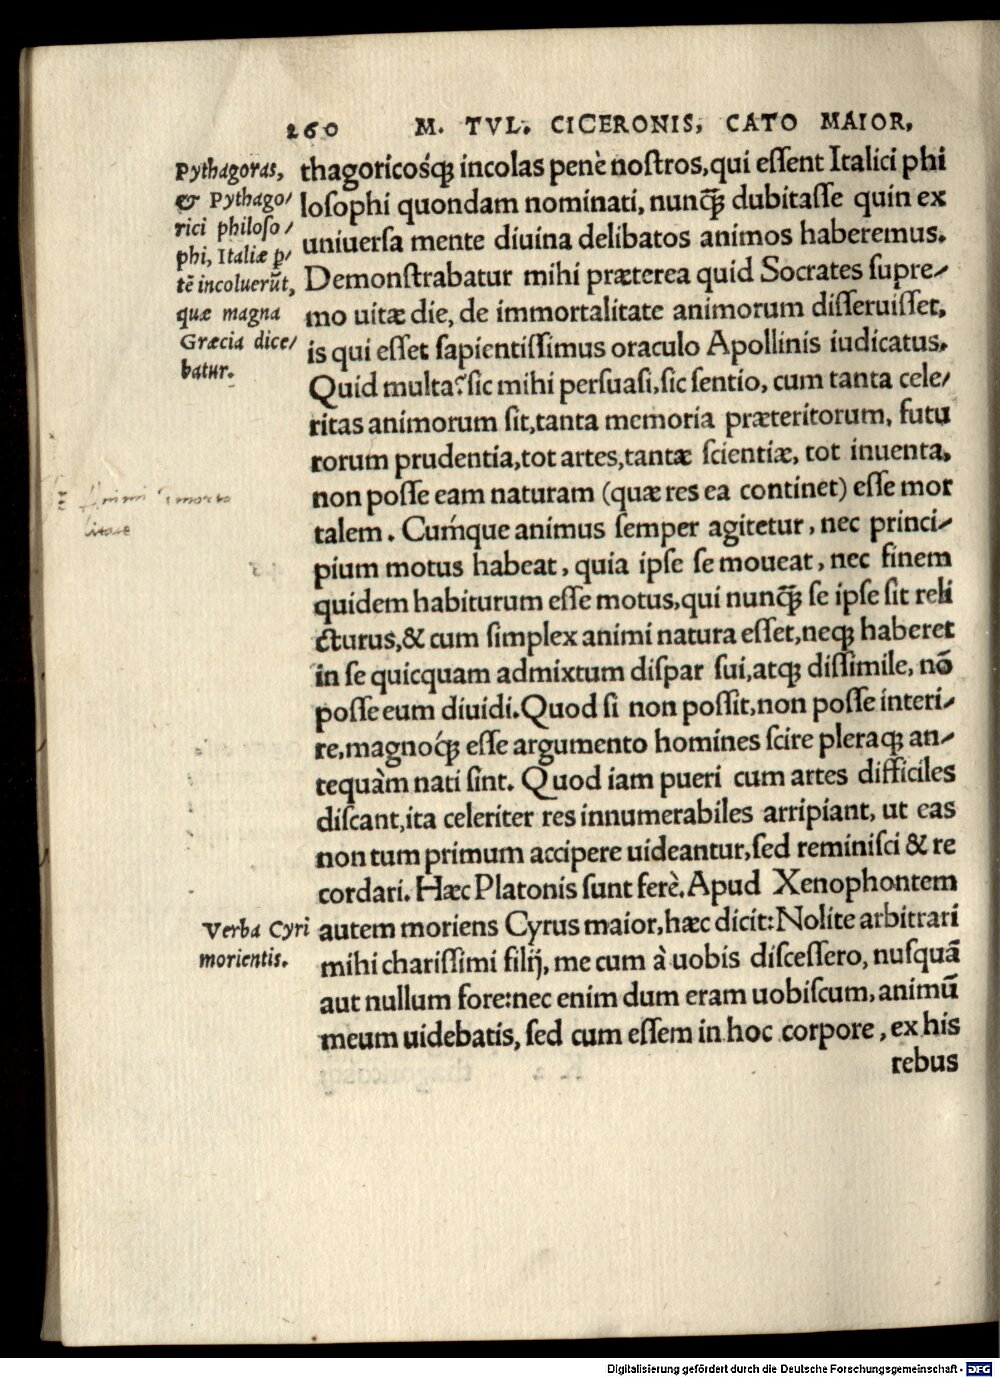 260 M. TVL. CICERONIS, CATO MAIOR,
Pythagoras,
& Pythago/
rici philoso/
phi, Italiæ p̱/
tẽ incoluerũt,
quæ magna
Græcia dice/
batur.
thagoricosq́ꝫ incolas penè nostros,qui essent Italici phi
losophi quondam nominati, nunq̃ꝫ dubitasse quin ex
uniuersa mente diuina delibatos animos haberemus.
Demonstrabatur mihi præterea quid Socrates supre/
mo uitæ die, de immortalitate animorum disseruisset,
is qui esset sapientissimus oraculo Apollinis iudicatus.
Quid multa? sic mihi persuasi,sic sentio, cum tanta cele/
ritas animorum sit,tanta memoria præteritorum, futu
rorum prudentia,tot artes,tantæ scientiæ, tot inuenta,
non posse eam naturam (quæ res ea continet) esse mor
talem. Cumq́ue animus semper agitetur, nec princi/
pium motus habeat, quia ipse se moueat, nec finem
quidem habiturum esse motus,qui nunq̃ꝫ se ipse sit reli
cturus,& cum simplex animi natura esset,neqꝫ haberet
in se quicquam admixtum dispar sui,atqꝫ dissimile, nõ
posse eum diuidi.Quod si non possit,non posse interi/
re,magnoq́ꝫ esse argumento homines scire pleraqꝫ an/
tequàm nati sint. Quod iam pueri cum artes difficiles
discant,ita celeriter res innumerabiles arripiant, ut eas
non tum primum accipere uideantur,sed reminisci & re
cordari. Hæc Platonis sunt ferè. Apud Xenophontem
Verba Cyri
morientis.
autem moriens Cyrus maior,hæc dicit: Nolite arbitrari
mihi charissimi filij, me cum à uobis discessero, nusquã
aut nullum fore:nec enim dum eram uobiscum,animũ
meum uidebatis, sed cum essem in hoc corpore, ex his
rebus
Digitalisierung gefördert durch die Deutsche Forschungsgemeinschaft - DFG